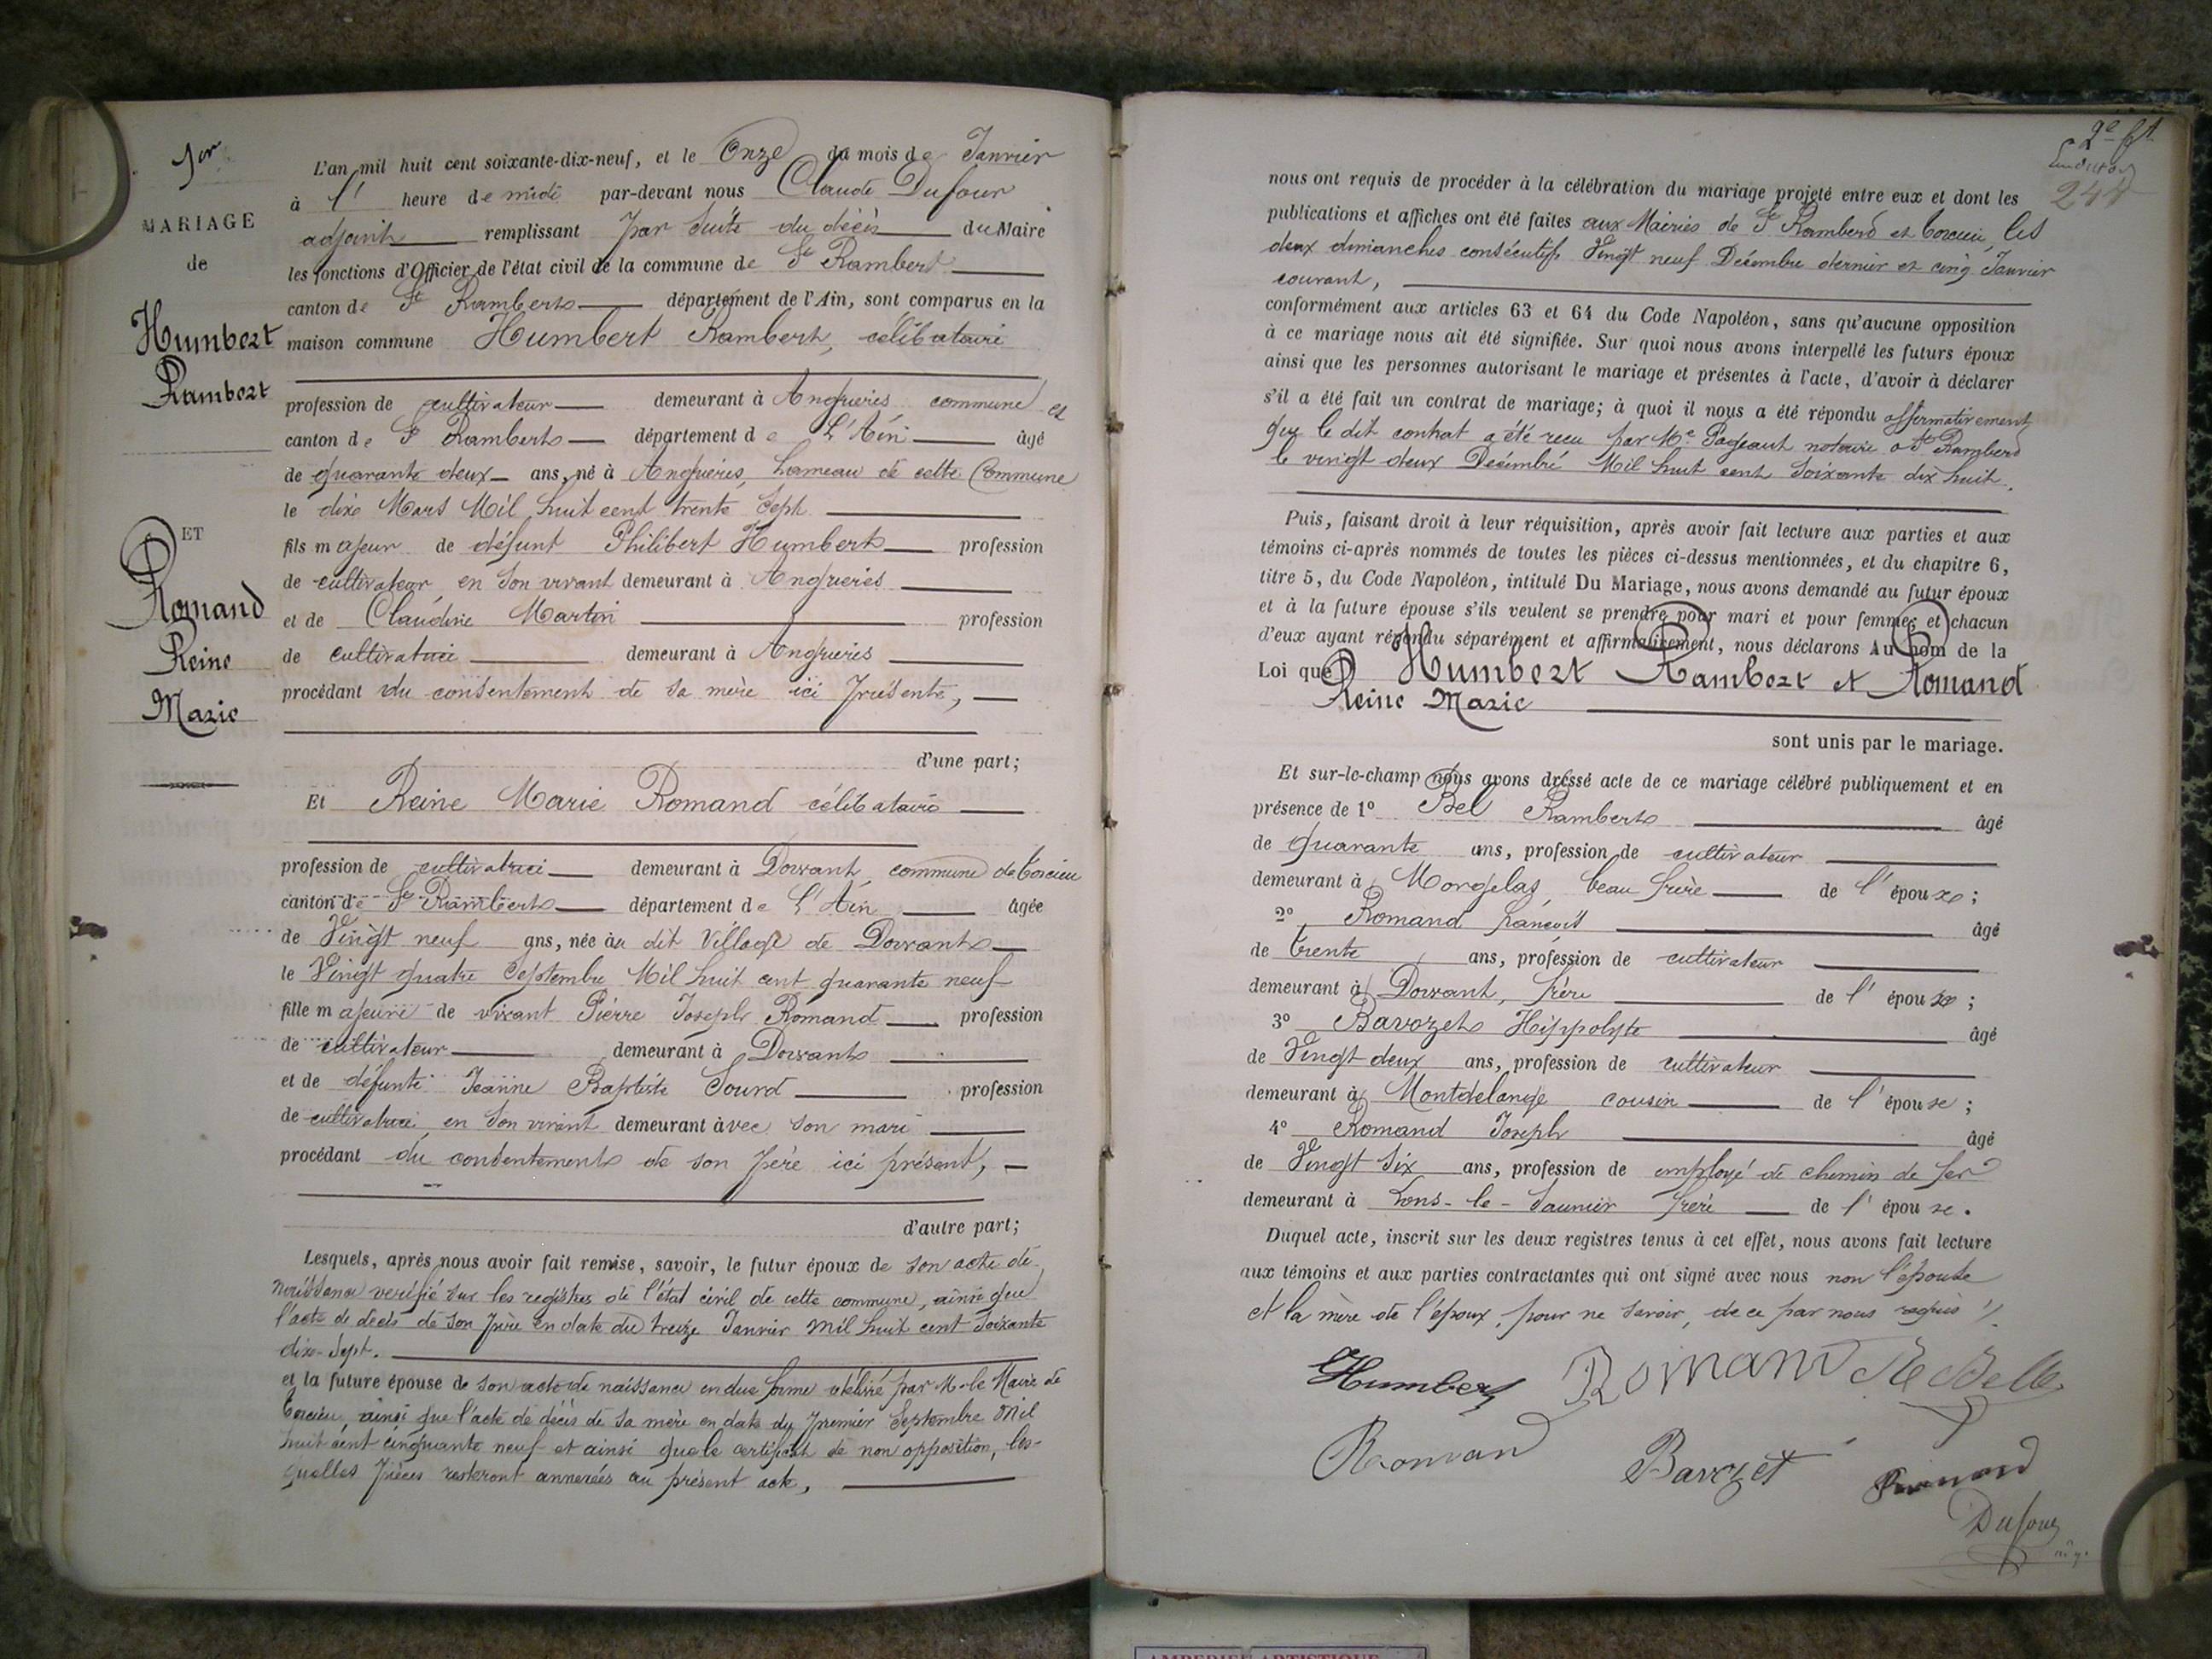 1er
MARIAGE
de
Humbert
Rambert
ET
Romand
Reine
Marie
L'an mil huit cent soixante-dix-neuf, et le Onze du mois de Janvier
à l' heure de midi par-devant nous Claude Dufour
adjoint remplissant par suite du décès du Maire
les fonctions d'Officier de l'état civil de la commune de St Rambert
canton de St Rambert département de l'Ain, sont comparus en la
maison commune Humbert Rambert, célibataire
profession de cultivateur demeurant à Angrieres commune et
canton de St Rambert département de L'Ain âgé
de quarante deux ans, né à Angrieres, hameau de cette Commune
le dix Mars Mil huit cent trente sept
fils majeur de défunt Philibert Humbert profession
de cultivateur en son vivant demeurant à Angrieres
et de Claudine Martin profession
de cultivatrice demeurant à Angrieres
procédant du consentement de sa mère ici présente,
d'une part;
Et Reine Marie Romand célibataire
profession de cultivatrice demeurant à Dorvant commune de Torcieu
canton de St Rambert département de L'Ain âgée
de Vingt neuf ans, née au dit Village de Dorvant
le Vingt quatre Septembre Mil huit cent quarante neuf
fille majeure de vivant Pierre Joseph Romand profession
de cultivateur demeurant à Dorvant
et de défunte Jeanne Baptiste Sourd profession
de cultivatrice en son vivant demeurant avec son mari
procédant du consentement de son père ici présent,
d'autre part;
Lesquels, après nous avoir fait remise, savoir, le futur époux de son acte de
naissance vérifié sur les registres de l'état civil de cette commune, ainsi que
l'acte de décès de son père en date du treize Janvier mil huit cent soixante
dix-sept.
et la future épouse de son acte de naissance en due forme délivré par M. le Maire de
Torcieu, ainsi que l'acte de décès de sa mère en date du premier Septembre Mil
huit cent cinquante neuf et ainsi que le certificat de non opposition, les-
quelles pièces resteront annexées au présent acte,
2e ft
244
nous ont requis de procéder à la célébration du mariage projeté entre eux et dont les
publications et affiches ont été faites aux Mairies de St Rambert et Torcieu, les
deux dimanches consécutifs Vingt neuf Décembre dernier et cinq Janvier
courant,
conformément aux articles 63 et 64 du Code Napoléon, sans qu'aucune opposition
à ce mariage nous ait été signifiée. Sur quoi nous avons interpellé les futurs époux
ainsi que les personnes autorisant le mariage et présentes à l'acte, d'avoir à déclarer
s'il a été fait un contrat de mariage; à quoi il nous a été répondu affirmativement
que le dit contrat a été reçu par Me Pageaut notaire à St Rambert
le vingt deux Décembre Mil huit cent soixante dix huit.
Puis, faisant droit à leur réquisition, après avoir fait lecture aux parties et aux
témoins ci-après nommés de toutes les pièces ci-dessus mentionnées, et du chapitre 6,
titre 5, du Code Napoléon, intitulé Du Mariage, nous avons demandé au futur époux
et à la future épouse s'ils veulent se prendre pour mari et pour femme; et chacun
d'eux ayant répondu séparément et affirmativement, nous déclarons Au nom de la
Loi que Humbert Rambert et Romand
Reine Marie
sont unis par le mariage.
Et sur-le-champ nous avons dressé acte de ce mariage célébré publiquement et en
présence de 1° Bel Rambert âgé
de quarante ans, profession de cultivateur
demeurant à Morgelas beau frère de l'époux;
2° Romand françois âgé
de trente ans, profession de cultivateur
demeurant à Dorvant, frère de l'épouse;
3° Bavozet Hippolyte âgé
de Vingt deux ans, profession de cultivateur
demeurant à Montdelange cousin de l'épouse;
4° Romand Joseph âgé
de Vingt six ans, profession de employé de chemin de fer
demeurant à Lons-le-Saunier frère de l'épouse.
Duquel acte, inscrit sur les deux registres tenus à cet effet, nous avons fait lecture
aux témoins et aux parties contractantes qui ont signé avec nous non l'épouse
et la mère de l'époux, pour ne savoir, de ce par nous requis
Humbert Romand
Romand Bavozet Romand
Dufour
AMBERIEU ARTISTIQUE